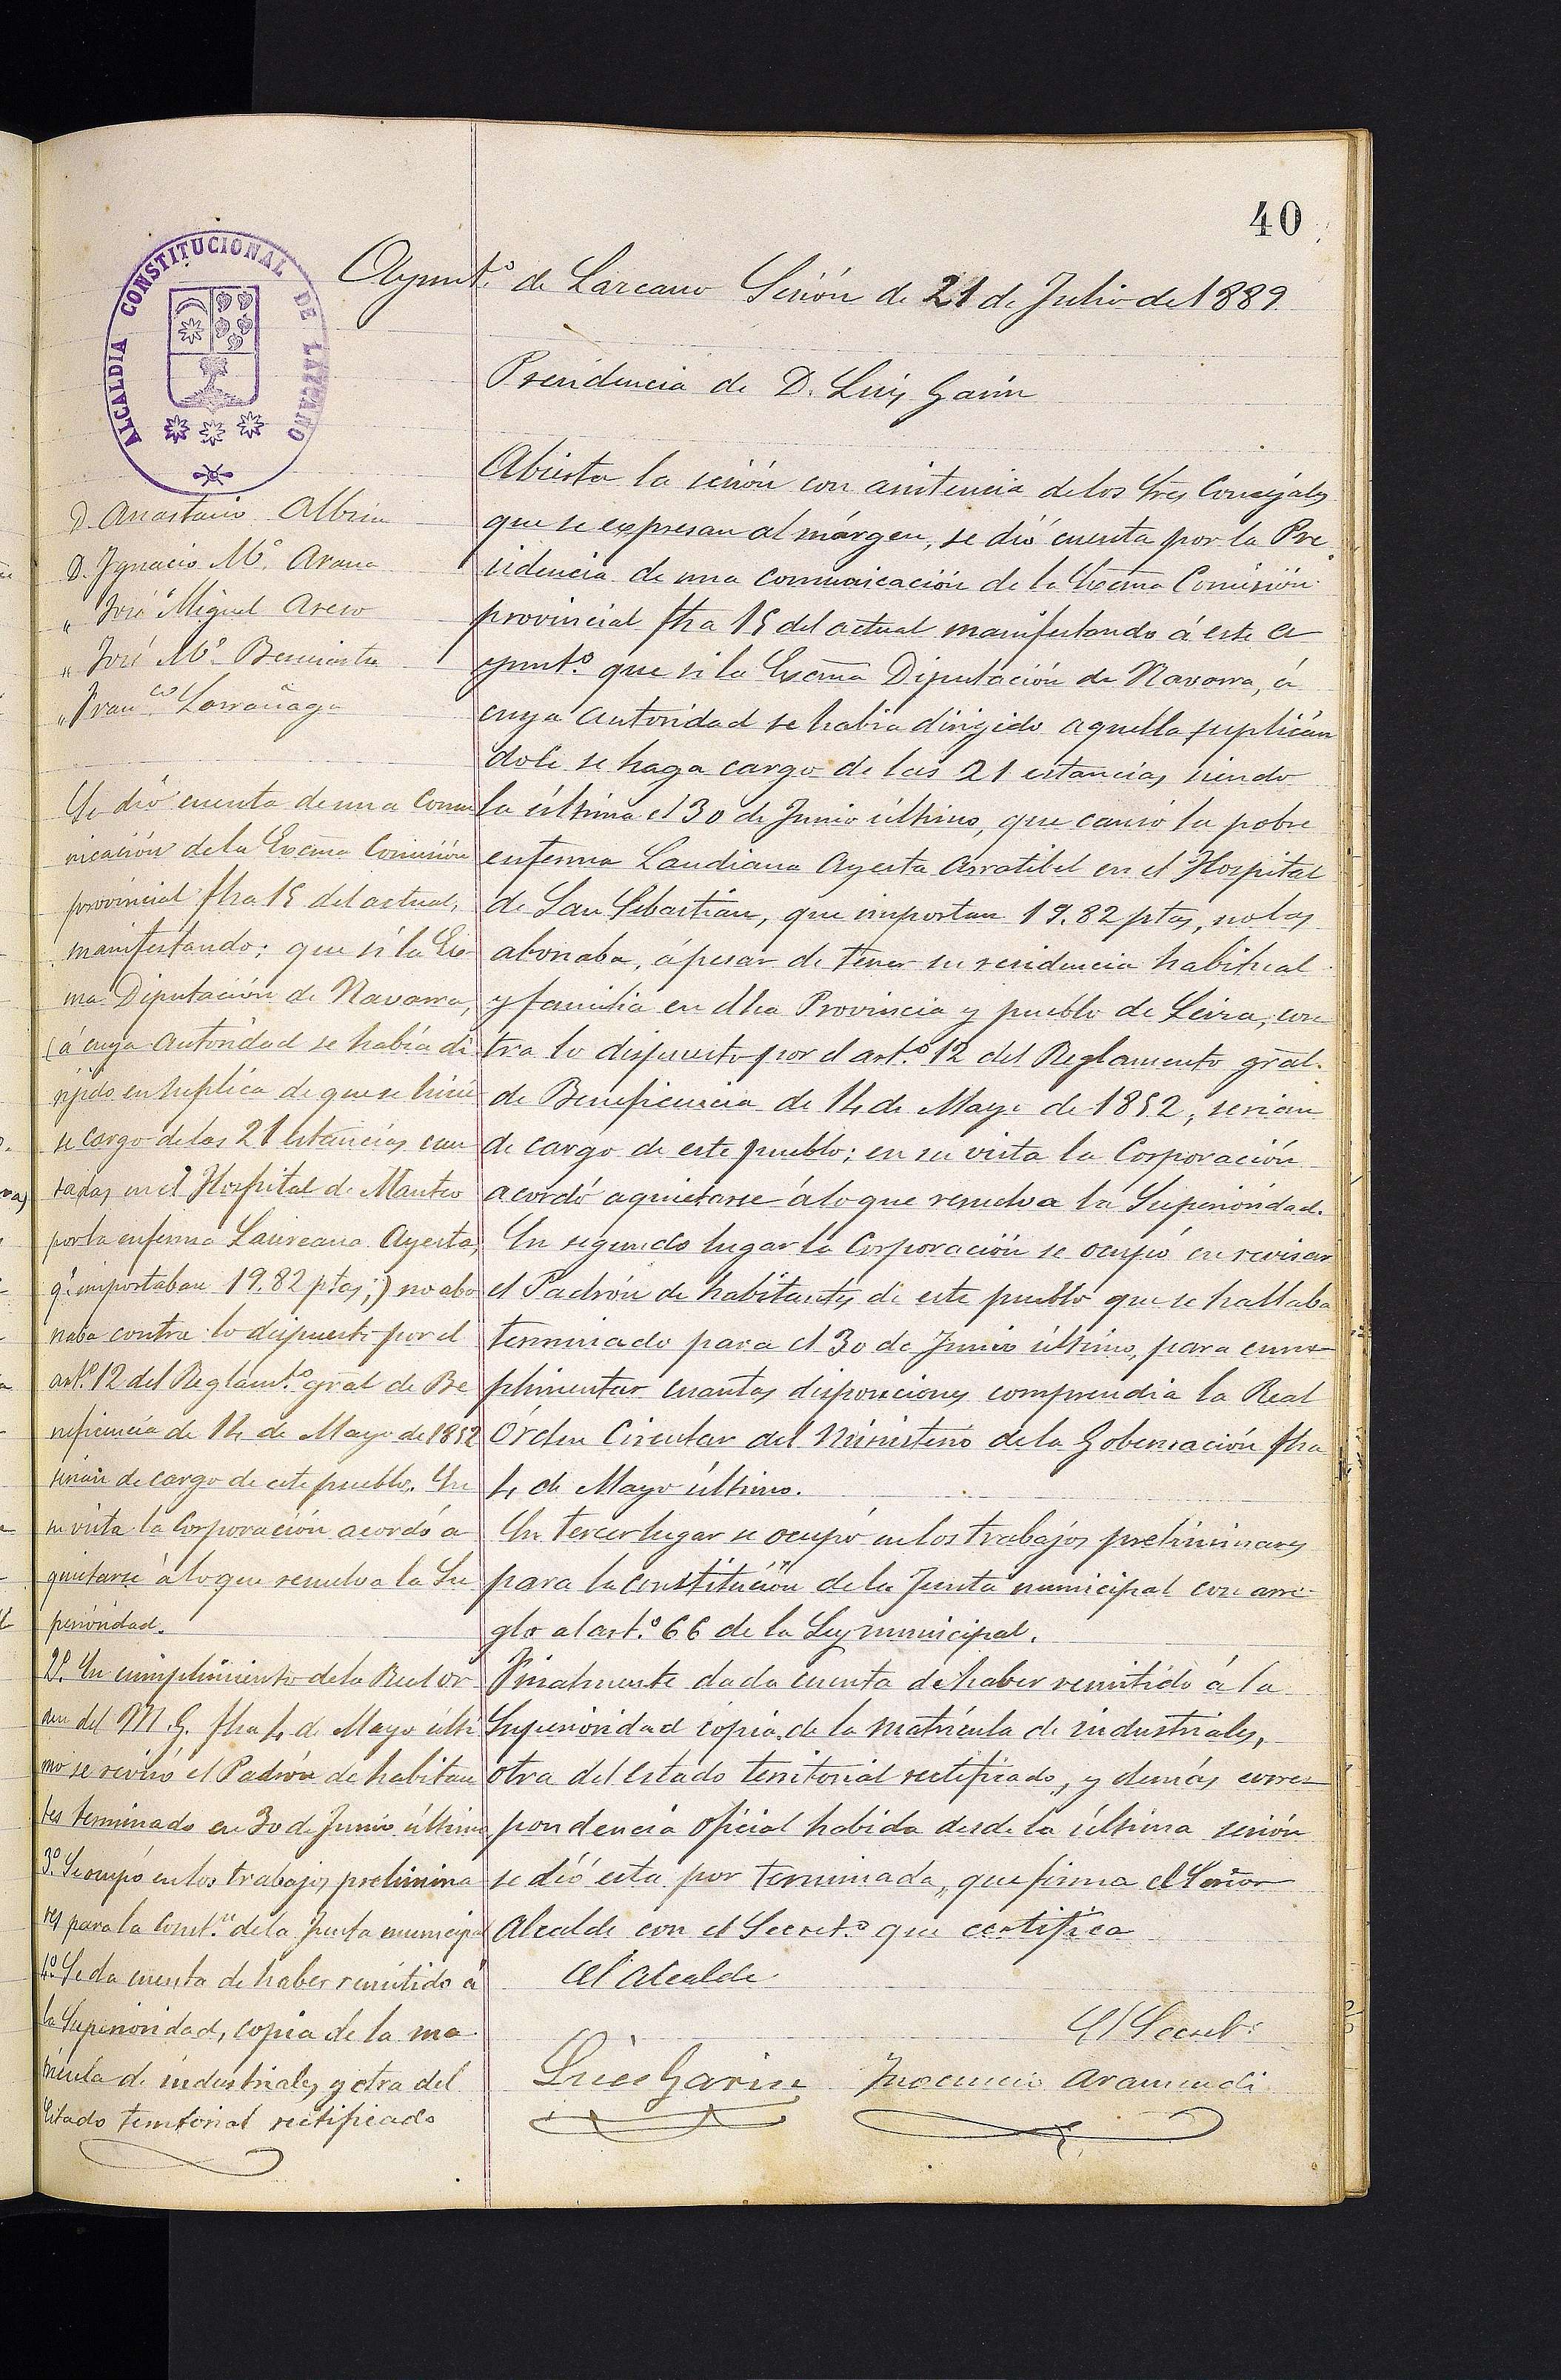 40
ALCALDIA CONSTITUCIONAL DE LAZCANO
Ayunt.º de Lazcano Sesión de 21 de Julio de 1889.
Presidencia de D. Luis Garin
D. Anastacio Albisu
D. Ygnacio M.ª Arana
" José Miguel Aseso
" José M.ª
" Fran.co Larrañaga
Se dió cuenta de una comu
nicación de la Excma Comisión
provincial fha 15 del actual,
manifestando: que si la Exc-
ma Diputación de Navarra,
(á cuya Autoridad se había di
rijido en suplica de que se hicie
se cargo de las 21 estancias cau
sadas en el Hospital de Manteo
por la enferma Laureana Ayerta,
q.e importaban 19.82 ptas;) no abo
naba contra lo dispuesto por el
art.º 12 del Reglamt.º gral de Be
neficencia de 14 de Mayo de 1852
serían de cargo de este pueblo. En
su vista la Corporación acordó a
quietarse á lo que resuelva la Su
perioridad.
2.º En cumplimiento de la Real or
den del M. G. fha 4 de Mayo últi
mo se revisó el Padrón de habitan
tes terminado en 30 de Junio último
3.º Se ocupó en los trabajos prelimina
res para la const.on de la Junta municipal
4.º Se da cuenta de haber remitido á
la Superioridad, copia de la ma
trícula de industriales y otra del
Estado territorial rectificado
Abierta la sesión con asistencia de los Sres Concejales
que se expresan al márgen, se dió cuenta por la Pre
sidencia de una comunicación de la Excma Comisión
provincial fha 15 del actual manifestando á este A
yunt.º que si la Excma Diputación de Navarra, á
cuya Autoridad se habia dirigido aquella suplicán
dole se haga cargo de las 21 estancias, siendo
la última el 30 de Junio último, que causó la pobre
enferma Laudiana Ayerta Arratibel en el Hospital
de San Sebastian, que importan 19.82 ptas, no las
abonaba, ápesar de tener su residencia habitual
y familia en dha Provincia y pueblo de Leiza, con
tra lo dispuesto por el art.º 12 del Reglamento gral.
de Beneficencia de 14 de Mayo de 1852, serian
de cargo de este pueblo; en su vista la Corporación
acordó aquietarse á lo que resuelva la Superioridad.
En segundo lugar la Corporación se ocupó en revisar
el Padrón de habitantes de este pueblo que se hallaba
terminado para el 30 de Junio último, para cum-
plimentar cuantas disposiciones comprendia la Real
Órden Circular del Ministerio de la Gobernación fha
4 de Mayo último.
En tercer lugar se ocupó en los trabajos preliminares
para la constitución de la Junta municipal con arre-
glo al art.º 66 de la Ley municipal.
Finalmente dada cuenta de haber remitido á la
Superioridad copia de la matrícula de industriales,
otra del Estado territorial rectificado, y demás corres
pondencia oficial habida desde la última sesión
se dió esta por terminada, que firma el Señor
Alcalde con el Secret.º que certifica
El Alcalde
El Secret.º
Luis Garin
Inocencio Aramendi